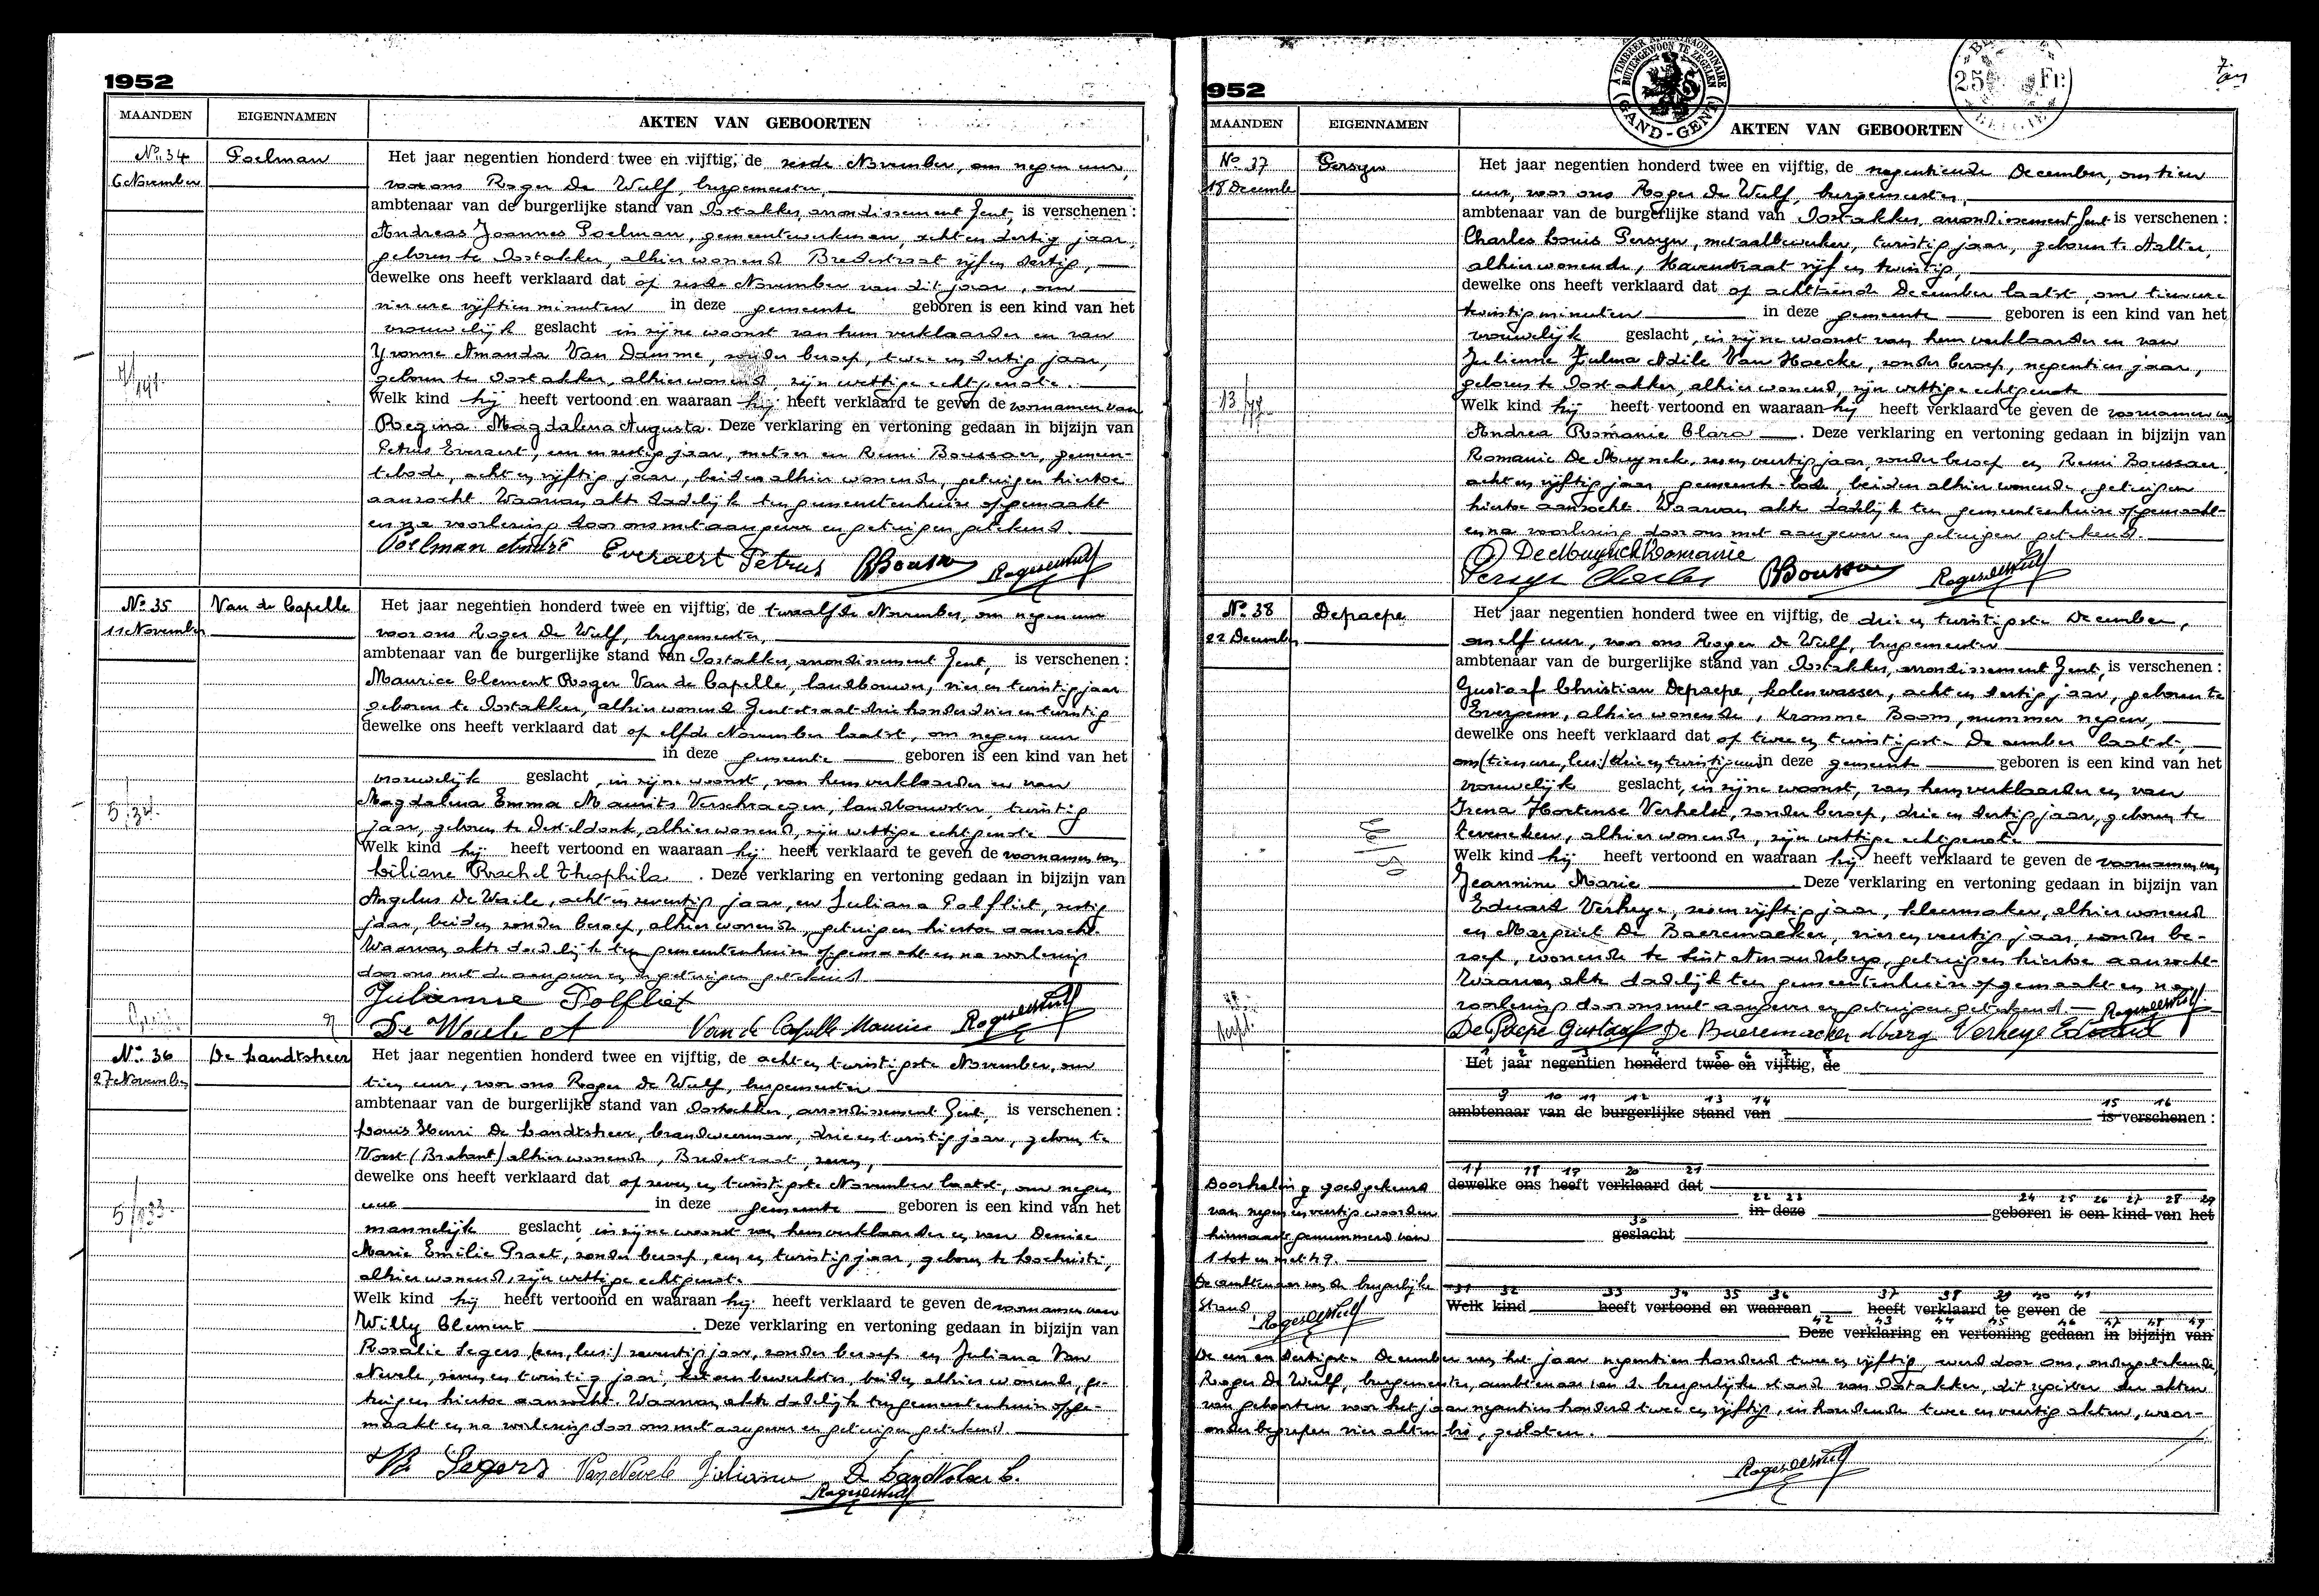 1952
MAANDEN
EIGENNAMEN
AKTEN VAN GEBOORTEN
No. 34
6 November
Poelman
Het jaar negentien honderd twee en vijftig, de zesde November, om negen uur,
voor ons Roger De Wulf, burgemeester,
ambtenaar van de burgerlijke stand van Oostakker, arrondissement Gent, is verschenen :
Andreas Joannes Poelman, gemeentewerkman, acht en dertig jaar,
geboren te Oostakker, alhier wonend Bredestraat vijf en dertig,
dewelke ons heeft verklaard dat op zesde November van dit jaar, om
vier ure vijftien minuten in deze gemeente geboren is een kind van het
vrouwelijk geslacht in zijne woonst van hem verklaarder en van
Yvonne Amanda Van Damme, zonder beroep, twee en dertig jaar,
geboren te Oostakker, alhier wonend, zijn wettige echtgenote.
Welk kind hij heeft vertoond en waaraan hij heeft verklaard te geven de voornamen van
Regina Magdalena Augusta. Deze verklaring en vertoning gedaan in bijzijn van
Petrus Everaert, een en zestig jaar, metser en Remi Boussaer, gemeen-
tebode, acht en vijftig jaar, beiden alhier wonende, getuigen hiertoe
aanzocht. Waarvan akte dadelijk ten gemeentenhuize opgemaakt
en na voorlezing door ons met aangever en getuigen getekend.
Poelman André Everaert Petrus RBoussa Roger DeWulf
No. 35
11 November
Van de Capelle
Het jaar negentien honderd twee en vijftig, de twaalfde November, om negen uur
voor ons Roger De Wulf, burgemeester,
ambtenaar van de burgerlijke stand van Oostakker, arrondissement Gent, is verschenen :
Maurice Clement Roger Van de Capelle, landbouwer, vier en twintig jaar
geboren te Oostakker, alhier wonend Gentstraat drie honderd vier en twintig
dewelke ons heeft verklaard dat op elfde November laatst, om negen uur
in deze gemeente geboren is een kind van het
vrouwelijk geslacht, in zijne woonst, van hem verklaarder en van
Magdalena Emma Maurits Verschraegen, landbouwster, twintig
jaar, geboren te Desteldonk, alhier wonend, zijn wettige echtgenote
Welk kind hij heeft vertoond en waaraan hij heeft verklaard te geven de voornamen van
Liliane Rachel Theophila. Deze verklaring en vertoning gedaan in bijzijn van
Angelus De Waele, acht en zeventig jaar, en Juliana Polfliet, zestig
jaar, beiden zonder beroep, alhier wonende, getuigen hiertoe aanzocht.
Waarvan akte dadelijk ten gemeentenhuize opgemaakt en na voorlezing
door ons met de aangever en de getuigen getekend
Julienne Polfliet
De Waele A Van de Capelle Maurice Roger DeWulf
No. 36
27 November
De Landtsheer
Het jaar negentien honderd twee en vijftig, de acht en twintigste November, om
tien uur, voor ons Roger De Wulf, burgemeester
ambtenaar van de burgerlijke stand van Oostakker, arrondissement Gent, is verschenen :
Louis Henri De Landtsheer, brandweerman, drie en twintig jaar, geboren te
Vorst (Brabant) alhier wonende, Bredestraat, zeven,
dewelke ons heeft verklaard dat op zeven en twintigste November laatst, om negen
uur in deze gemeente geboren is een kind van het
mannelijk geslacht, in zijne woonst van hem verklaarder en van Denise
Marie Emilie Praet, zonder beroep, een en twintig jaar, geboren te Lochristi,
alhier wonend, zijn wettige echtgenote
Welk kind hij heeft vertoond en waaraan hij heeft verklaard te geven de voornamen van
Willy Clement. Deze verklaring en vertoning gedaan in bijzijn van
Rosalie Segers (een, lees:) zeventig jaar, zonder beroep en Juliana Van
Nevele, zeven en twintig jaar, katoenbewerkster, beiden alhier wonende, ge-
tuigen hiertoe aanzocht. Waarvan akte dadelijk ten gemeentenhuize opge-
maakt en na voorlezing door ons met aangever en getuigen getekend.
Segers Van Nevele Juliana De Landtsheer L.
Roger DeWulf
952
MAANDEN
EIGENNAMEN
AKTEN VAN GEBOORTEN
A TIMBRER A L'EXTRAORDINAIRE
BUITENGEWOON TE ZEGELEN
GAND-GENT
25 Fr.
No. 37
18 Decembe
Persyn
Het jaar negentien honderd twee en vijftig, de negentiende December, om tien
uur, voor ons Roger De Wulf, burgemeester,
ambtenaar van de burgerlijke stand van Oostakker, arrondissement Gent is verschenen :
Charles Louis Persyn, metaalbewerker, twintig jaar, geboren te Aalter,
alhier wonende, Havenstraat vijf en twintig,
dewelke ons heeft verklaard dat op achttiende December laatst, om tien ure
twintig minuten in deze gemeente geboren is een kind van het
vrouwelijk geslacht, in zijne woonst van hem verklaarder en van
Julienne Zulma Adile Van Hoecke, zonder beroep, negentien jaar,
geboren te Oostakker, alhier wonend, zijn wettige echtgenote
Welk kind hij heeft vertoond en waaraan hij heeft verklaard te geven de voornamen van
Andrea Romanie Clara. Deze verklaring en vertoning gedaan in bijzijn van
Romanie De Muynck, zes en veertig jaar, zonder beroep en Remi Boussaer
acht en vijftig jaar gemeente-bode, beiden alhier wonende, getuigen
hiertoe aanzocht. Waarvan akte dadelijk ten gemeentenhuize opgemaakt
en na voorlezing door ons met aangever en getuigen getekend.
De Muynck Romanie
Persyn Charles RBoussa Roger DeWulf
No. 38
22 December
Depaepe
Het jaar negentien honderd twee en vijftig, de drie en twintigste December,
om elf uur, voor ons Roger De Wulf, burgemeester
ambtenaar van de burgerlijke stand van Oostakker, arrondissement Gent, is verschenen :
Gustaaf Christian Depaepe, kolenwasser, acht en dertig jaar, geboren te
Evergem, alhier wonende, Kromme Boom, nummer negen,
dewelke ons heeft verklaard dat op twee en twintigste December laatst,
om (tien ure, lees:) drie en twintig uur in deze gemeente geboren is een kind van het
vrouwelijk geslacht, in zijne woonst, van hem verklaarder en van
Irena Hortense Verhelst, zonder beroep, drie en dertig jaar, geboren te
Ieveneken, alhier wonende, zijn wettige echtgenote
Welk kind hij heeft vertoond en waaraan hij heeft verklaard te geven de voornamen van
Jeannine Marie Deze verklaring en vertoning gedaan in bijzijn van
Eduard Verheye, zes en vijftig jaar, kleermaker, alhier wonend
en Margriet De Baeremaeker, vier en veertig jaar, zonder be-
roep, wonende te Sint Amandsberg, getuigen hiertoe aanzocht.
Waarvan akte dadelijk ten gemeentenhuize opgemaakt en na
voorlezing door ons met aangever en getuigen getekend. Roger DeWulf
De Paepe Gustaaf De Baeremaeker Verheye Eduard
1 2 3 4 5 6 7 8
Het jaar negentien honderd twee en vijftig, de
9 10 11 12 13 14 15 16
ambtenaar van de burgerlijke stand van is verschenen :
17 18 19 20 21
dewelke ons heeft verklaard dat
22 23 24 25 26 27 28 29
in deze geboren is een kind van het
30
geslacht
31 32 33 34 35 36 37 38 39 40 41
Welk kind heeft vertoond en waaraan heeft verklaard te geven de
42 43 44 45 46 47 48 49
Deze verklaring en vertoning gedaan in bijzijn van
Doorhaling goedgekeurd
van negen en veertig woorden
hiernaast genummerd van
1 tot en met 49.
De ambtenaar van de burgerlijke
Stand
Roger DeWulf
De een en dertigste December van het jaar negentien honderd twee en vijftig, werd door ons, ondergetekende,
Roger De Wulf, burgemeester, ambtenaar van de burgerlijke stand van Oostakker, dit register der akten
van geboorten voor het jaar negentien honderd twee en vijftig, inhoudende twee en veertig akten, waar-
onder begrepen vier akten bis, gesloten.
Roger DeWulf